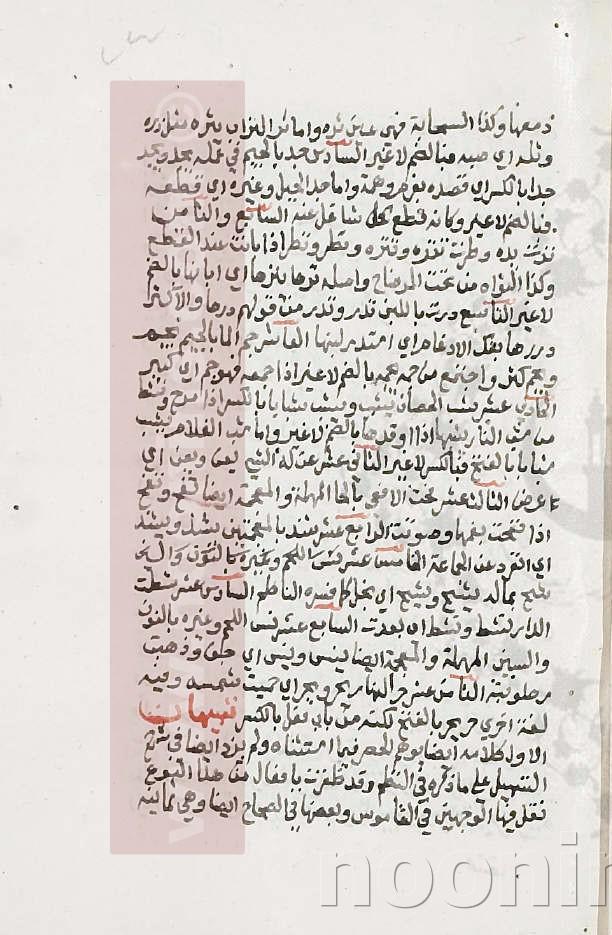 دمعها وكذا السحابة فهي عين ثرة واما ثر التراب يثره مثل ذره
وثله اي صبه فبالضم لا غير السادس جد بالجيم في عمله يجد ويجد
جدا بالكسر اي قصده بعزم وهمة واما جد الحبل وغيره اي قطعه
فبالضم لا غير وكانه قطع كل شاغل عنه السابع والثامن
ترت يده وطرت تتر وتتر وتطر وتطر اذا بانت عند القطع
وكذا النواه من تحت المرضاح واصله ترها يترها اي ابانها بالضم
لا غير التاسع درت باللبن تدر وتدر من قولهم درها والاكثر
دررها بفك الادغام اي امتد لبنها العاشر جم الماء بالجيم يجم
ويجم كثر واجتمع من جمه يجمه بالضم لا غير اذا جمعه فهو جم اي كثير
الحادي عشر شب الحصان يشب ويشب شبابا بالكسر اذا مرح ونشط
من شب النار يشبها اذا اوقدها بالضم لا غير واما شب الغلام يشب
شبابا بالفتح فبالكسر لا غير الثاني عشر عن له الشيء يعن ويعن اي
عرض الثالث عشر فحت الافعى بالحا المهملة والمعجمة ايضا تفح وتفح
اذا نفخت بفمها وصوتت الرابع عشر شذ بالمعجمتين يشذ ويشذ
اي انفرد عن الجماعة الخامس عشر شح
بماله يشح ويشح اي بخل كما فسره الناظم السادس عشر شطت
الدار تشط وتشط اي بعدت السابع عشر نس اللحم وغيره بالنون
والسين المهملة والمعجمة ايضا ينس وينس اي جف وذهبت
رطوبته الثامن عشر حر النهار يحر ويحر اي حميت شمسه وفيه
لغة اخرى حر يحر بالفتح لكنه من باب فعل بالكسر تنبيهات
الاول كلامه ايضا يوهم الحصر فيما استثناه ولم يزد ايضا في شرح
التسهيل على ما ذكره في النظم وقد ظفرت بافعال من هذا النوع
نقل فيها الوجهين في القاموس وبعضها في الصحاح ايضا وهي ثمانية
noonin